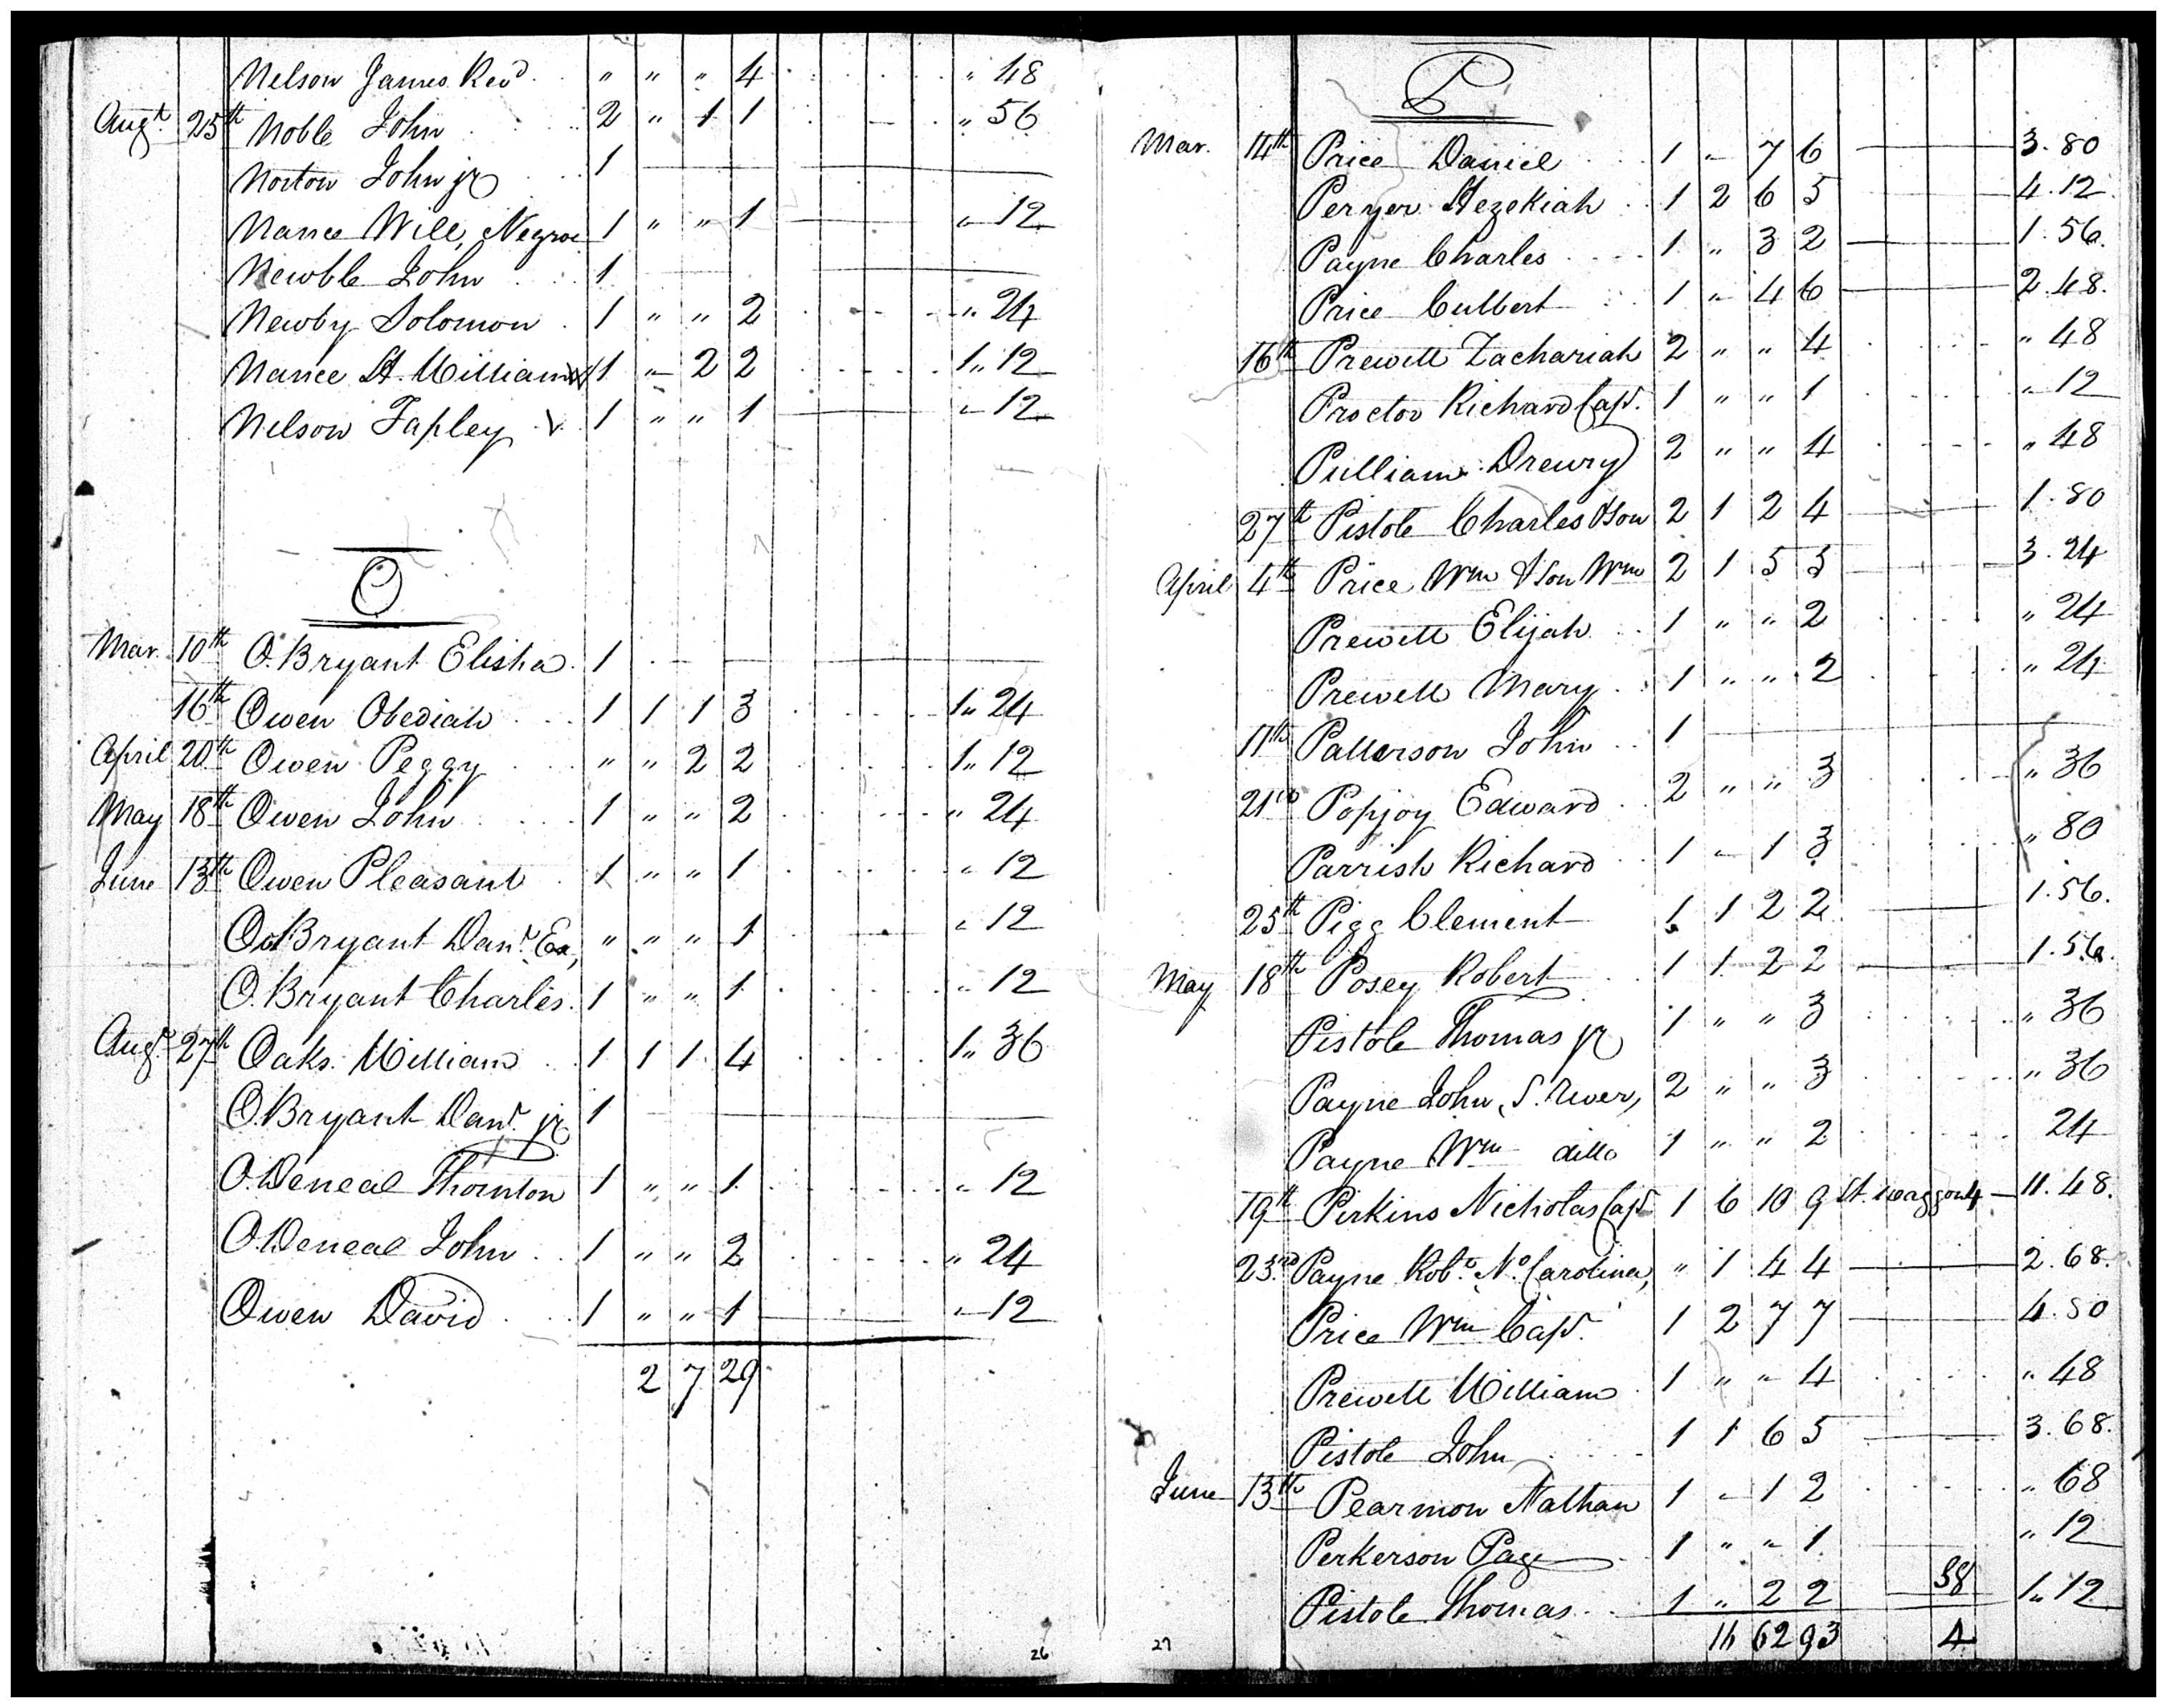 Nelson James Revd. " " " 4 " 48
Augt. 25th Noble John 2 " 1 1 " 56
Norton John jr 1
Nance Will, Negroe 1 " " 1 " 12
Newble John 1
Newby Solomon 1 " " 2 " 24
Nance H. William 1 " 2 2 1 " 12
Nelson Tapley 1 " " 1 " 12
O
Mar. 10th O.Bryant Elisha 1
16th Owen Obediah 1 1 1 3 1 " 24
April 20th Owen Peggy " " 2 2 1 " 12
May 18th Owen John 1 " " 2 " 24
June 13th Owen Pleasant 1 " " 1 " 12
O.Bryant Danl. Ex, " " " 1 " 12
O.Bryant Charles 1 " " 1 " 12
Augt 27th Oaks William 1 1 1 4 1 " 36
O.Bryant Danl. jr 1
O.Deneal Thornton 1 " " 1 " 12
O.Deneal John 1 " " 2 " 24
Owen David 1 " " 1 " 12
2 7 29
26
P
Mar. 14th Price Daniel 1 " 7 6 3.80
Peryer Hezekiah 1 2 6 5 4.12
Payne Charles 1 " 3 2 1.56.
Price Culbert 1 " 4 6 2.48.
16th Prewett Zachariah 2 " " 4 " 48
Proctor Richard Capt. 1 " " 1 " 12
Pulliam Drewry 2 " " 4 " 48
27th Pistole Charles & son 2 1 2 4 1.80
April 4th Price Wm & Son Wm 2 1 5 5 3.24
Prewett Elijah 1 " " 2 " 24
Prewett Mary 1 " " 2 " 24
11th Patterson John 1
21st Popjoy Edward 2 " " 3 " 36
Parrish Richard 1 " 1 3 " 80
25th Pigg Clement 1 1 2 2 1.56.
May 18th Posey Robert 1 1 2 2 1.56.
Pistole Thomas jr 1 " " 3 " 36
Payne John, S. River, 2 " " 3 " 36
Payne Wm ditto 1 " " 2 24
19th Perkins Nicholas Capt. 1 6 10 9 St. waggon 4 11.48.
23rd Payne Robt. No. Carolina, " 1 4 4 2.68.
Price Wm Capt. 1 2 7 7 4.80
Prewett William 1 " " 4 " 48
Pistole John 1 1 6 5 3.68.
June 13th Pearmon Nathan 1 " 1 2 " 68
Perkerson Page 1 " " 1 " 12
Pistole Thomas 1 " 2 2 1 " 12
16 62 93 4
27